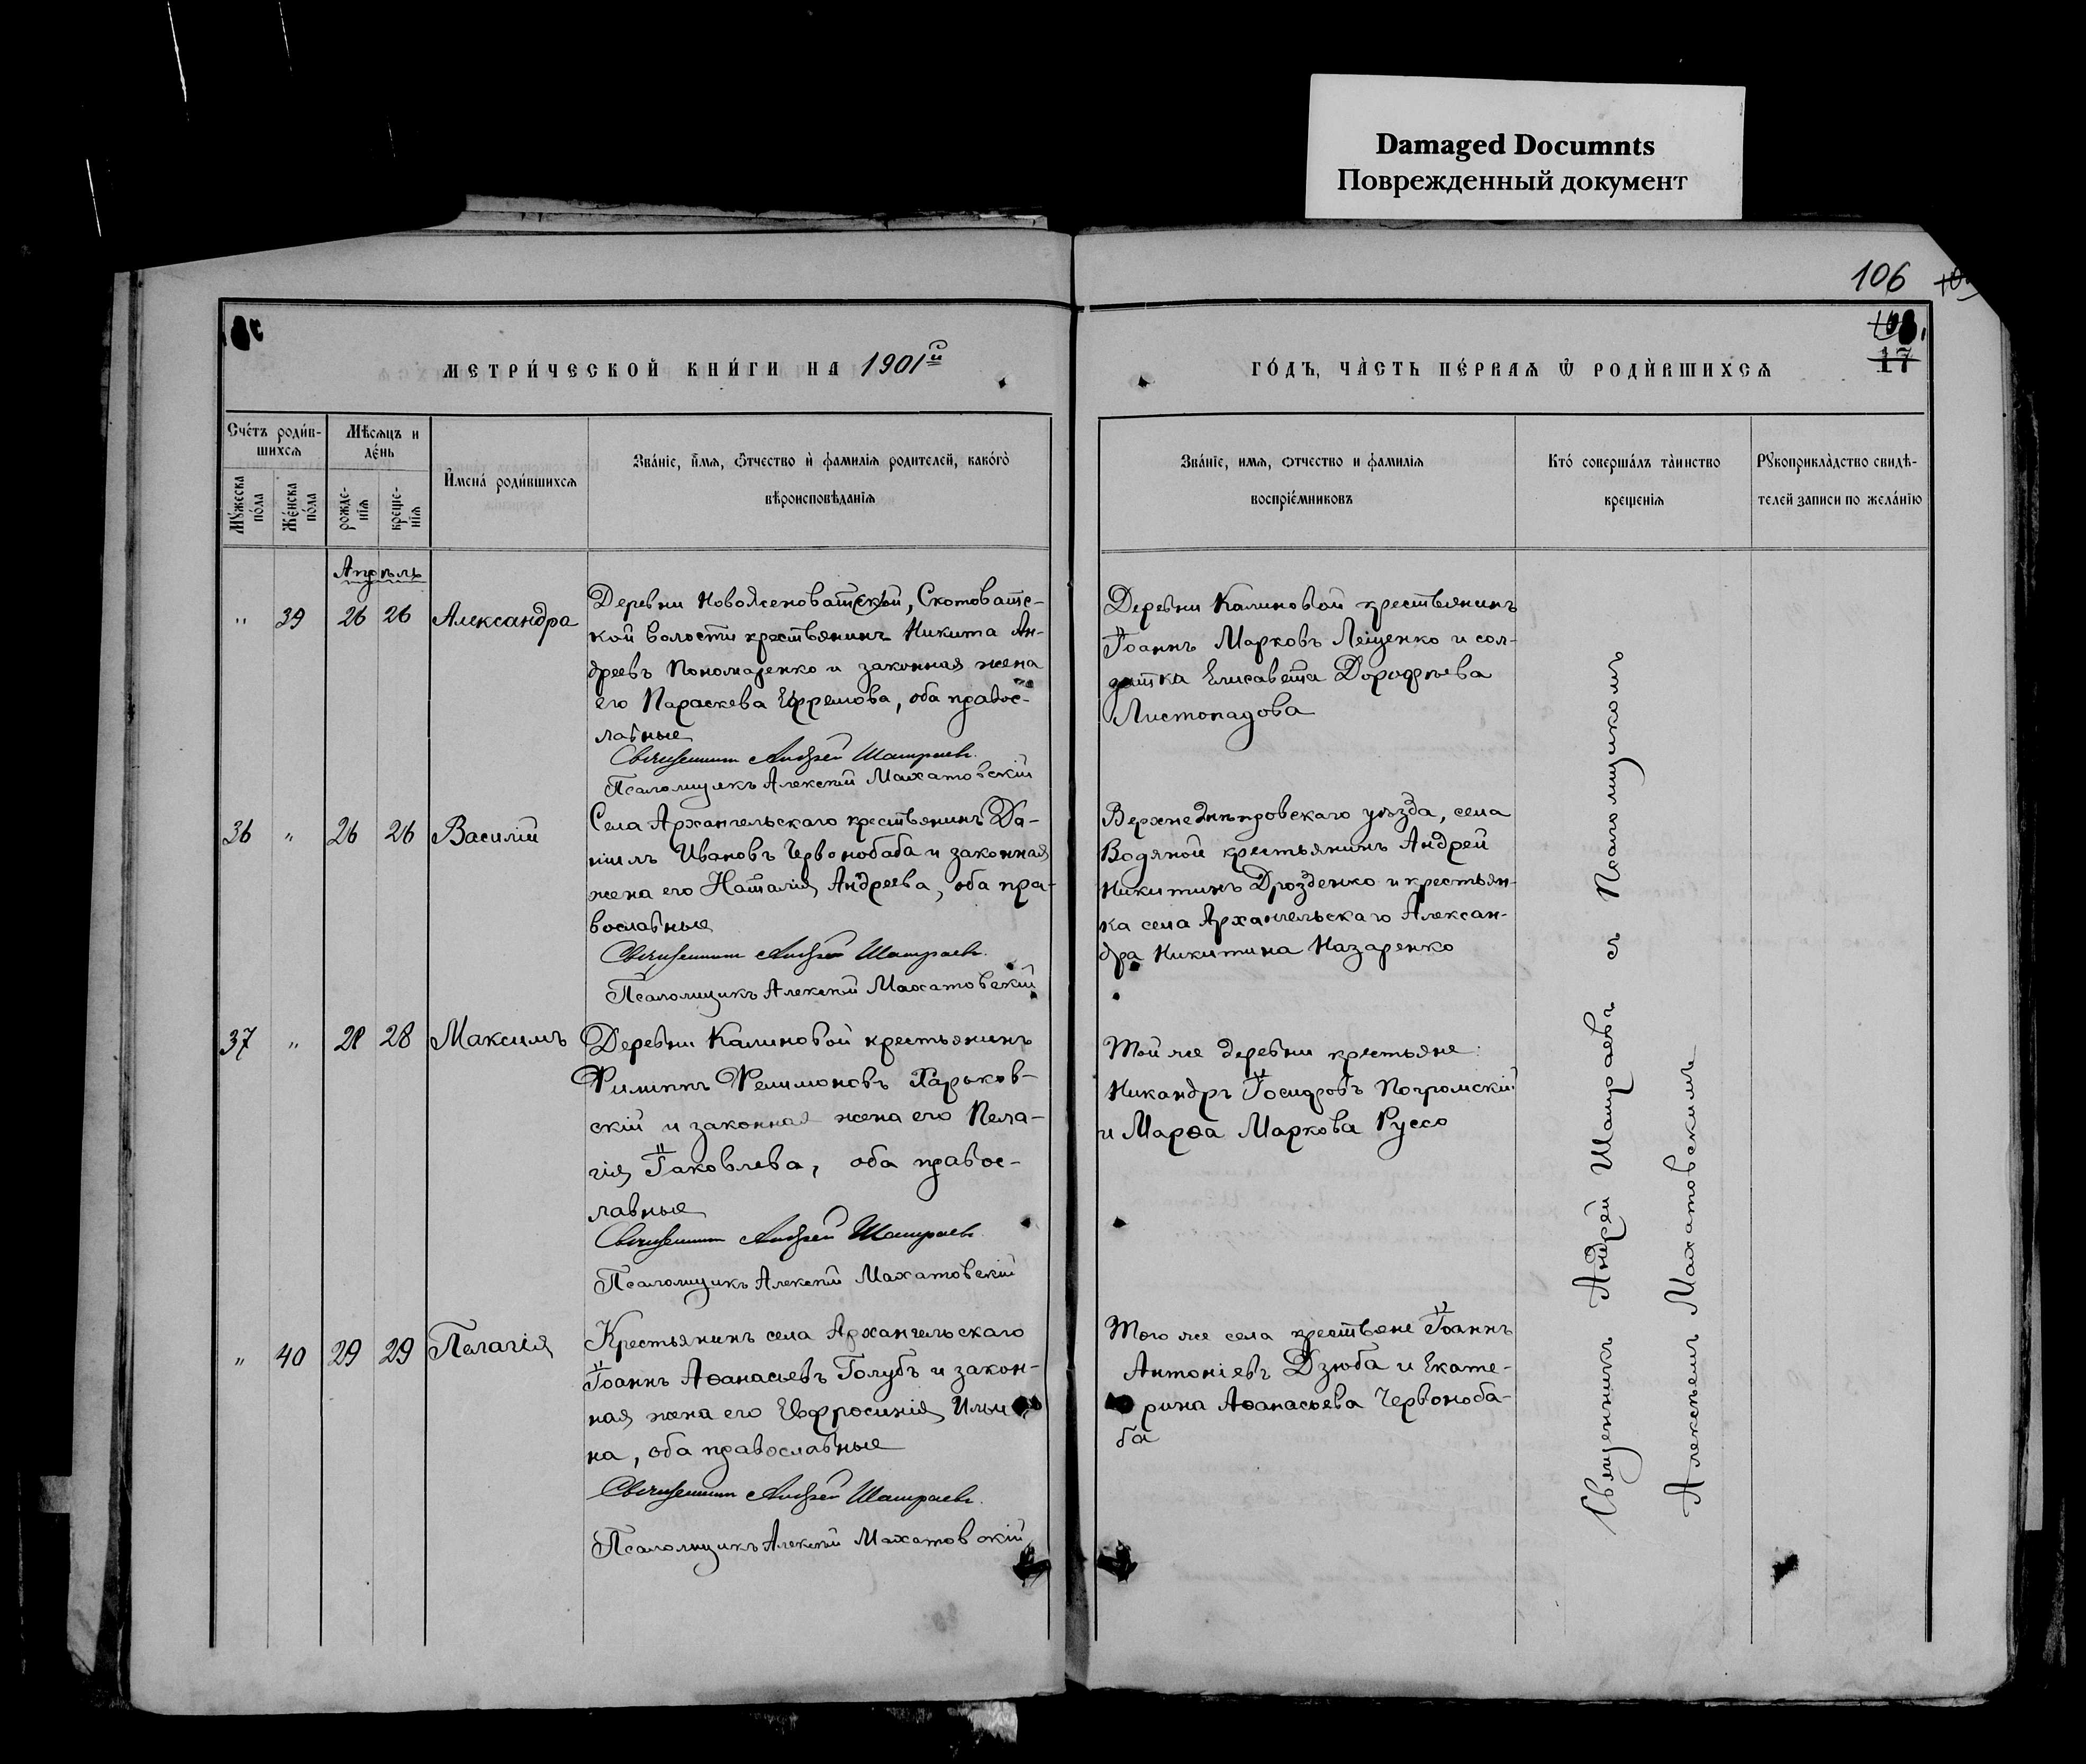 Damaged Documnts
Поврежденный документ
106
17
МЕТРИ́ЧЕСКОЙ КНИ́ГИ НА 1901й
ГО́ДЪ, ЧА̀СТЬ ПЕ́РВАѦ Ѿ РОДИ́ВШИХСѦ
Сче́тъ роди́в-
шихсѧ
Мꙋ́жеска
по́ла
Же́нска
по́ла
Мѣсѧцъ и
де́нь
рожде-
нїѧ
креще-
нїѧ
И҆мена́ роди́вшихсѧ
Зва́нїе, и҆́мѧ, ѻ҆́тчество и҆ фамилїѧ родителей, како́гѡ
вѣроисповѣ́данїѧ
Зва́нїе, имѧ, ѻтчество и фамилїѧ
воспрїе́мниковъ
Кто́ соверша́лъ та̀инство
крещенїѧ
Рꙋкоприкла̀дство свидѣ-
телей записи по жела́нїю
Апрѣль
" 39 26 26 Александра
Деревни Новоженоватской, Скотоватс-
кой волости крестьянинъ Никита Ан-
дреевъ Пономаренко и законная жена
его Параскева Ефремова, оба правос-
лавные
Священникъ Андрей Шатраевъ.
Псаломщикъ Алексѣй Махатовскій
Деревни Калиновой крестьянинъ
Іоаннъ Марковъ Лещенко и сол-
датка Елисавета Дорофѣева
Листопадова
36 " 26 26 Василій
Села Архангельскаго крестьянинъ Да-
ніилъ Ивановъ Червонобаба и законная
жена его Наталія Андреева, оба пра-
вославные
Священникъ Андрей Шатраевъ.
Псаломщикъ Алексѣй Махатовскій
Верхнеднѣпровскаго уѣзда, села
Водяной крестьянинъ Андрей
Никитинъ Дрозденко и крестьян-
ка села Архангельскаго Алексан-
дра Никитина Назаренко
37 " 28 28 Максимъ
Деревни Калиновой крестьянинъ
Филиппъ Филимоновъ Харьков-
скій и законная жена его Пела-
гія Іаковлева, оба правос-
лавные
Священникъ Андрей Шатраевъ.
Псаломщикъ Алексѣй Махатовскій
Той же деревни крестьяне:
Никандръ Іосифовъ Погромскій
и Марѳа Маркова Руссо
" 40 29 29 Пелагія
Крестьянинъ села Архангельскаго
Іоаннъ Аѳанасьевъ Голубъ и закон-
ная жена его Евфросинія Ильи
на, оба православные
Священникъ Андрей Шатраевъ.
Псаломщикъ Алексѣй Махатовскій
Того же села крестьяне Іоаннъ
Антоніевъ Дзюба и Екате-
рина Аѳанасьева Червоноба-
ба
Священникъ Андрей Шатраевъ съ Псаломщикомъ
Алексѣемъ Махатовскимъ